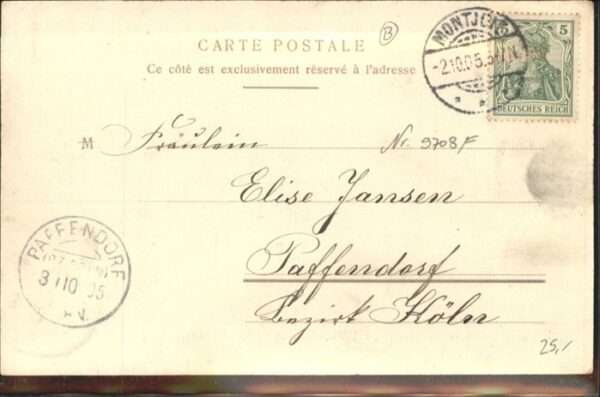 B
CARTE POSTALE
Ce côté est exclusivement réservé à l'adresse
MONTJOIE
-2.10.05.5-7N.
5
DEUTSCHES REICH
M Fräulein
Nr. 9708F
Elise Jansen
Paffendorf
Bezirk Köln
PAFFENDORF
3/10 05
N.
25,/